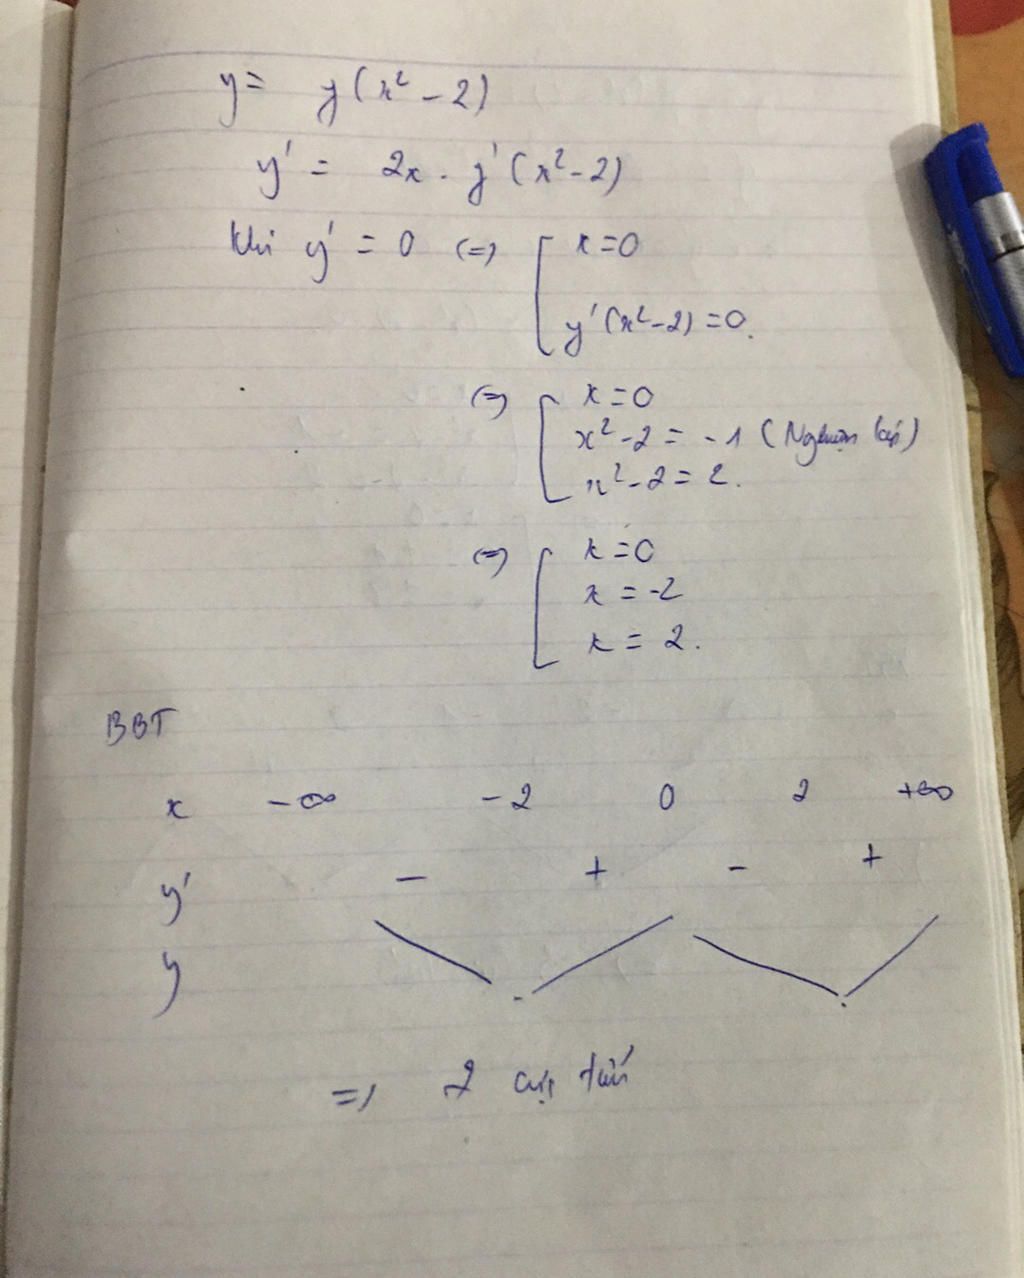 y = y(x² - 2)
y' = 2x . y'(x² - 2)
Khi y' = 0 (=) [ x = 0
y'(x² - 2) = 0.
(=) [ x = 0
x² - 2 = -1 (Nghiệm kép)
x² - 2 = 2.
(=) [ x = 0
x = -2
x = 2.
BBT
x -∞ -2 0 2 +∞
y' - + - +
y
=) 2 cực tiểu